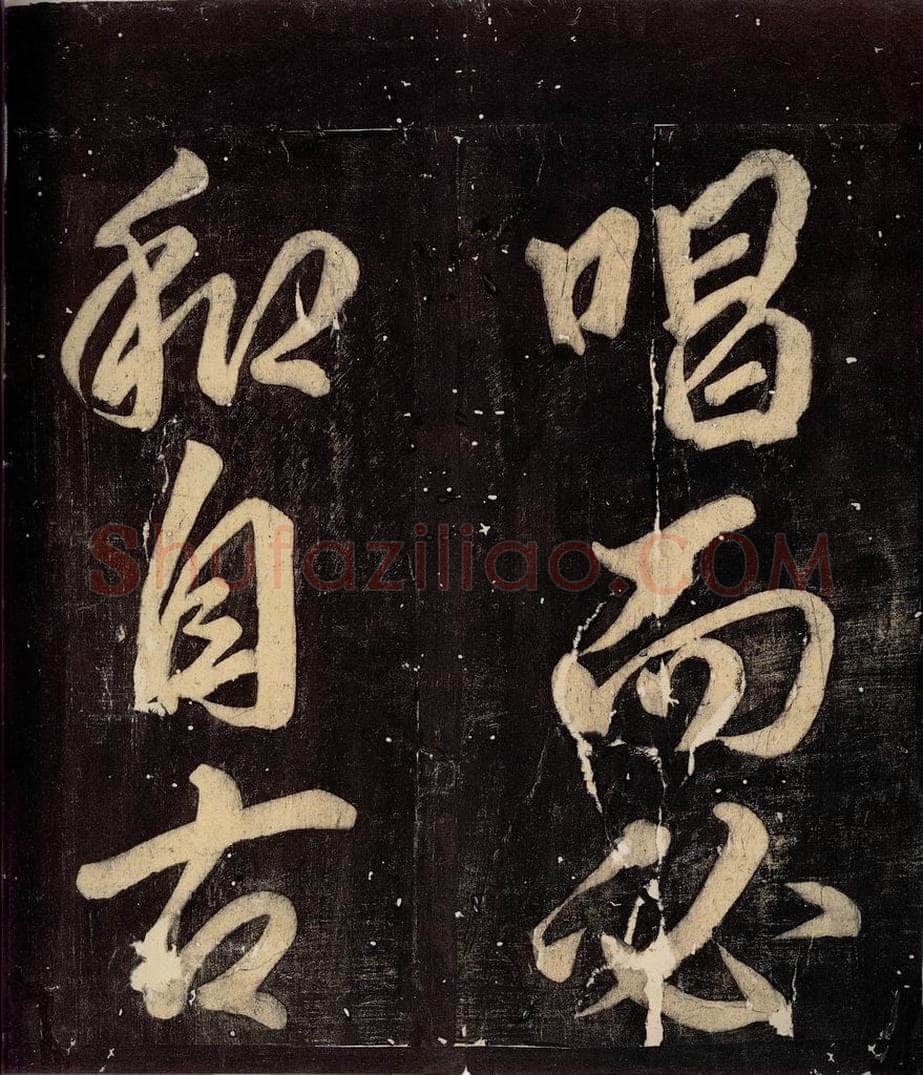 唱而必
和自古
Shufaziliao.COM